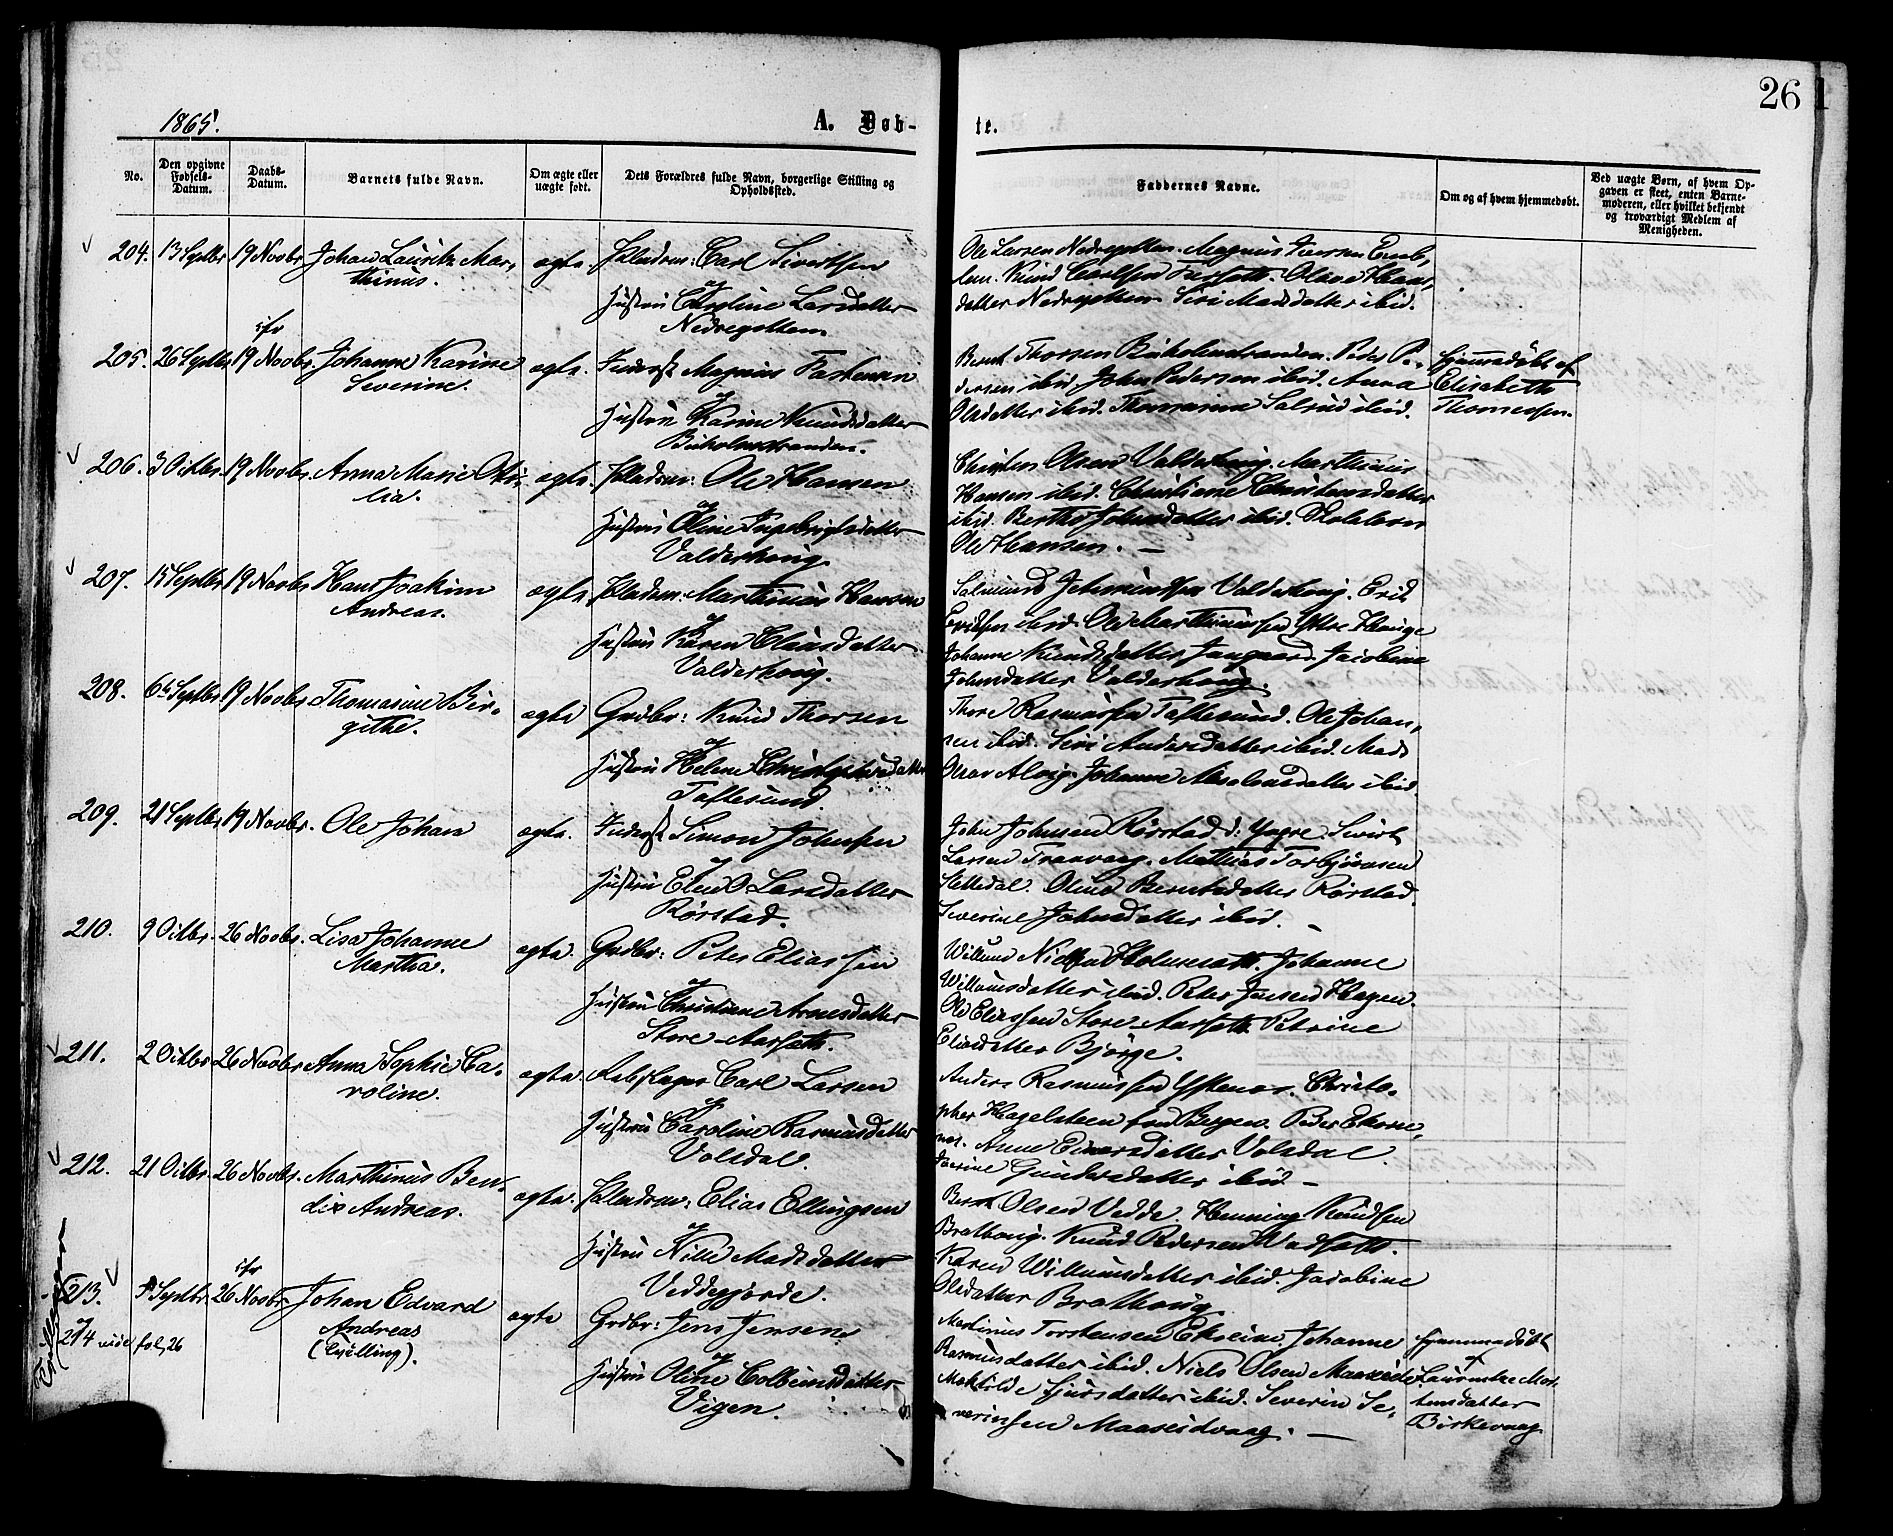 26
1865.
A. Döb-
te.
No.
Den opgivne Fødsels-Datum.
Daabs-Datum.
Barnets fulde Navn.
Om ægte eller uægte født.
Dets Forældres fulde Navn, borgerlige Stilling og Opholdssted.
Faddernes Navne.
Om og af hvem hjemmedøbt.
Ved uægte Børn, af hvem Op-
gaven er skeet, enten Barne-
moderen, eller hvilket bekjendt
og troværdigt Medlem af
Menigheden.
204. 13 Septbr 19 Novbr Johan Lauritz Mar-
thinus.
ægte. Carl Sivertsen
Hustru Caroline Larsdatter
Nedregotten.
Ole Larsen Nedregotten. Magnus Iversen Emb-
lem. Knud Carlsen
datter Nedregotten Siri Madsdatter ibid.
205. 26 Septbr 19 Novbr. Johanne Karine
Severine.
ægte. Inderst Magnus
Hustru Karine Knudsdatter
Bernt Thorsen Peder Pe-
dersen ibid, John Pedersen ibid. Anna
Olsdatter ibid. Thomasine ibid.
hjemmedøbt af
Elisabeth
Thomessen.
206. 3 Octbr. 19 Novbr. Anna Marie Oti-
lia.
ægte. Ole Hansen
Hustru Oline Ingebrigtsdatter
Valderhoug
Olsen Valderhoug. Marthinus
Hansen ibid. Christiane Christensdatter
ibid. Berthe Johnsdatter ibid.
Ole Hansen. —
207. 15 Septbr 19 Novbr Hans Joakim
Andreas.
ægte Marthinus Hansen
Hustru Karen Eliasdatter
Valderhoug.
Valderhoug. Erik
ibid. Ole Marthinussen Ytre Houge
Johanne Knudsdatter Jacobine
Johnsdatter Valderhoug.
208. 6te Septbr 19 Novbr Thomasine Bir-
githe.
ægte Grdbr: Knud Thorsen
Hustru Helene
Taftesund
Thore Rasmussen Taftesund. Ole Johan-
nen ibid. Siri Andersdatter ibid. Mads
Johanne ibid.
209. 21 Septbr 19 Novbr. Ole Johan
ægte. Inderst Simon Johnsen
Hustru Elen O. Larsdatter
Rørstad.
John Johnsen Rørstad d: Yngre. Sivert
Larsen Tranvaag. Mathias Torbjørnsen
Slettedal. Oline Berntsdatter Rørstad.
Severine Johnsdatter ibid. —
210. 9 Octbr. 26 Novbr. Lisa Johanne
Martha.
ægte. Grdbr: Peter Eliassen
Hustru Christiane Arnesdatter
Store-Aarsæth.
Willum Johanne
Willumsdatter ibid. Peter Jensen Hagen.
Ole Eliassen Store-Aarsæth Petrine
Eliasdatter Bjørge.
211. 2 Octbr 26 Novbr Anna Sophie Ca-
roline.
ægte. Rebslager Carl Larsen
Hustru Caroline Rasmusdatter
Volsdal.
Anders Rasmussen Ystenæs. Christo-
pher Hagelsteen fra Bergen. Peder Ekorne-
næs. Anne Einarsdatter Volsdal.
Iverine Gundersdatter ibid —
212. 21 Octbr. 26 Novbr. Marthinus Ben-
dix Andreas.
ægte. Elias Ellingsen
Hustru Nille Madsdatter
Veddegjerde.
Bernt Olsen Vedde. Henning Knudsen
Brathoug. Knud Pedersen
Karen Willumsdatter ibid. Jacobine
Olsdatter Brathoug.
213. 5 Septbr. 26 Novbr Johan Edvard
Andreas
(Tvilling).
ægte Grdbr: Jens Jensen
Hustru Oline Colbeinsdatter
Vigen.
Martinus Torstensen Johanne
Rasmusdatter ibid. Niels Olsen Maaseide
Mathilde ibid. Severin Se-
verinsen Maaseidvaag. —
hjemmedøbt
af
Laurentse Mor-
tensdatter
Birkevaag
214 vide fol. 26